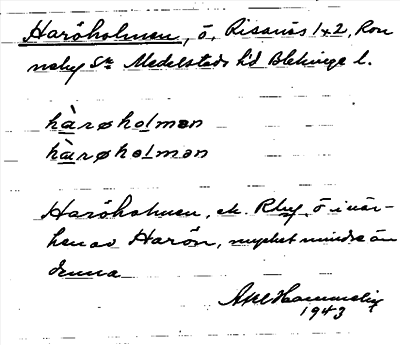 Haröholmen, ö, Risanäs 1+2, Ron
neby Sn Medelstads hd Blekinge l.
hàrøholmən
hàrøholmən
Haröholmen, ek. Rby, ö i när-
hen av Harön, mycket mindre än
denna
Axel Hammelig
1943